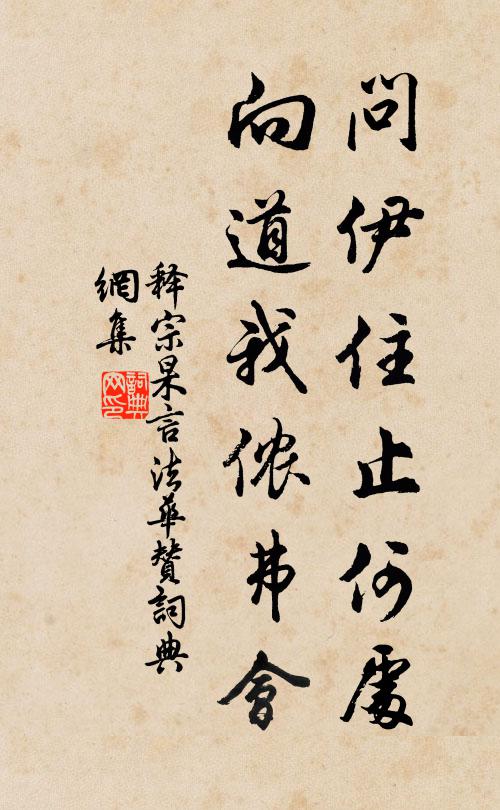 問伊住止何處
向道我侬弗會
释宗杲言法華贊詞典
網集
詞典
网印